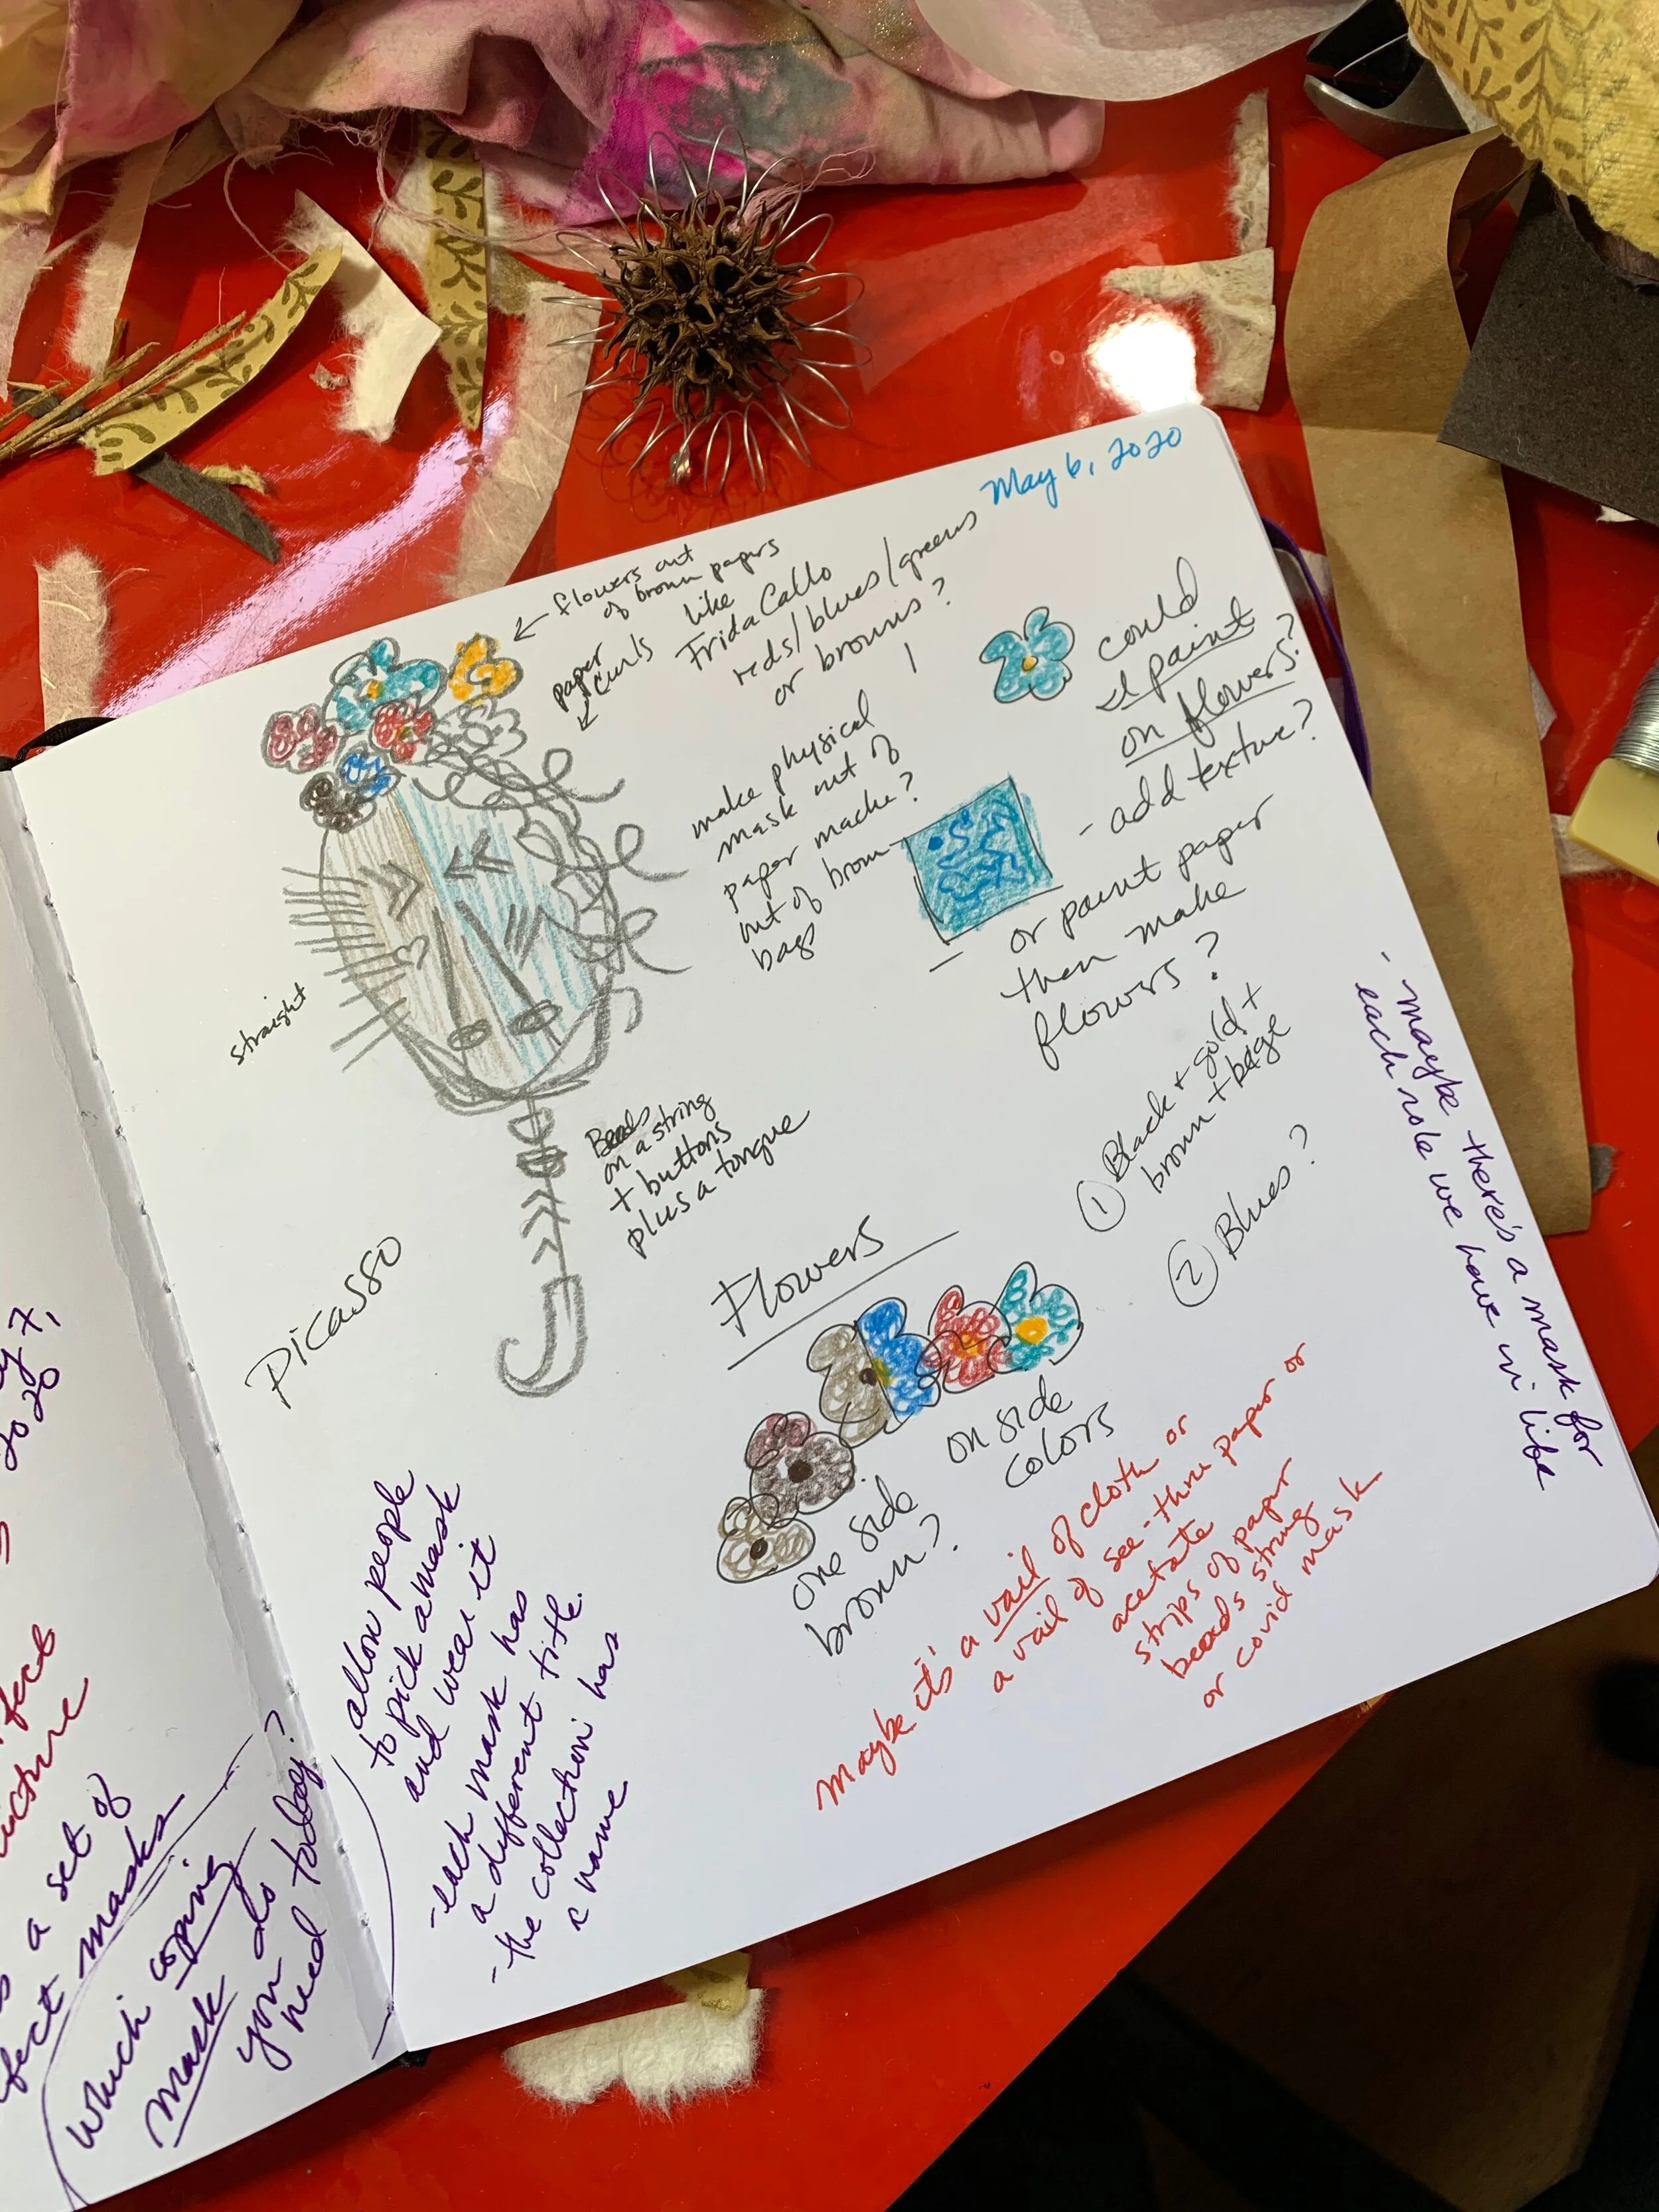 May 6, 2020
← flowers out
of brown papers
like
Frida Callo
reds/blues/greens
or browns?
paper
curls
could
I paint
on flowers?
- add texture?
- or paint paper
then make
flowers?
make physical
mask out of
paper mache?
out of brown
bags
straight
Beads
on a string
+ buttons
plus a tongue
Picasso
① Black + gold +
brown + bage
② Blues?
Flowers
on side
colors
one side
brown?
- maybe there's a mask for
each role we have in life
Maybe it's a vail of cloth or
a vail of see-thru paper or
acetate
strips of paper
beads string
or covid mask
allow people
to pick a mask
and wear it
- each mask has
a different title.
- the collection has
a name
y 7,
2020
fect
a set of
fect masks
which coping
mask do
you
need today?